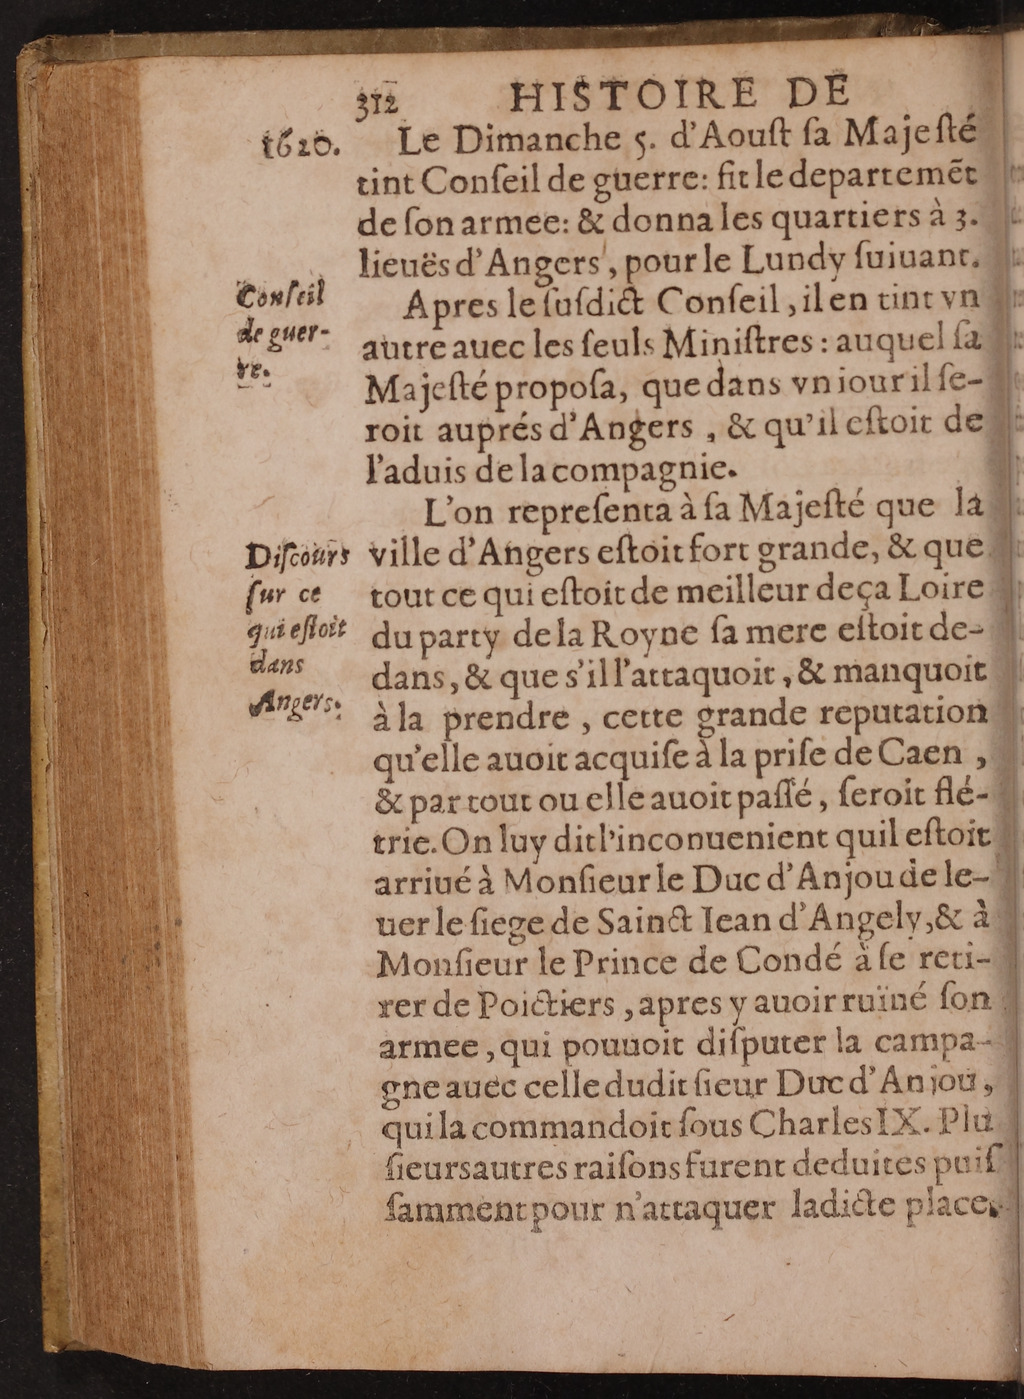 312 HISTOIRE DE
1620.
Le Dimanche 5. d'Aouſt ſa Majeſté
tint Conſeil de guerre: fit le departemēt
de ſon armee: & donna les quartiers à 3.
lieuës d'Angers, pour le Lundy ſuiuant.
Conſeil
de guer-
re.
Apres le ſuſdict Conſeil, il en tint vn
autre auec les ſeuls Miniſtres: auquel ſa
Majeſté propoſa, que dans vn iour il ſe-
roit auprés d'Angers, & qu'il eſtoit de
l'aduis de la compagnie.
L'on repreſenta à ſa Majeſté que la
Diſcours
ſur ce
qui eſtoit
dans
Angers.
ville d'Angers eſtoit fort grande, & que
tout ce qui eſtoit de meilleur deça Loire
du party de la Royne ſa mere eſtoit de-
dans, & que s'il l'attaquoit, & manquoit
à la prendre, cette grande reputation
qu'elle auoit acquiſe à la priſe de Caen,
& par tout ou elle auoit paſſé, ſeroit flé-
trie. On luy dit l'inconuenient quil eſtoit
arriué à Monſieur le Duc d'Anjou de le-
uer le ſiege de Sainct Iean d'Angely, & à
Monſieur le Prince de Condé à ſe reti-
rer de Poictiers, apres y auoir ruïné ſon
armee, qui pouuoit diſputer la campa-
gne auec celle dudit ſieur Duc d'Anjou,
qui la commandoit ſous Charles IX. Plu
ſieurs autres raiſons furent deduites puiſ
ſamment pour n'attaquer ladicte place,